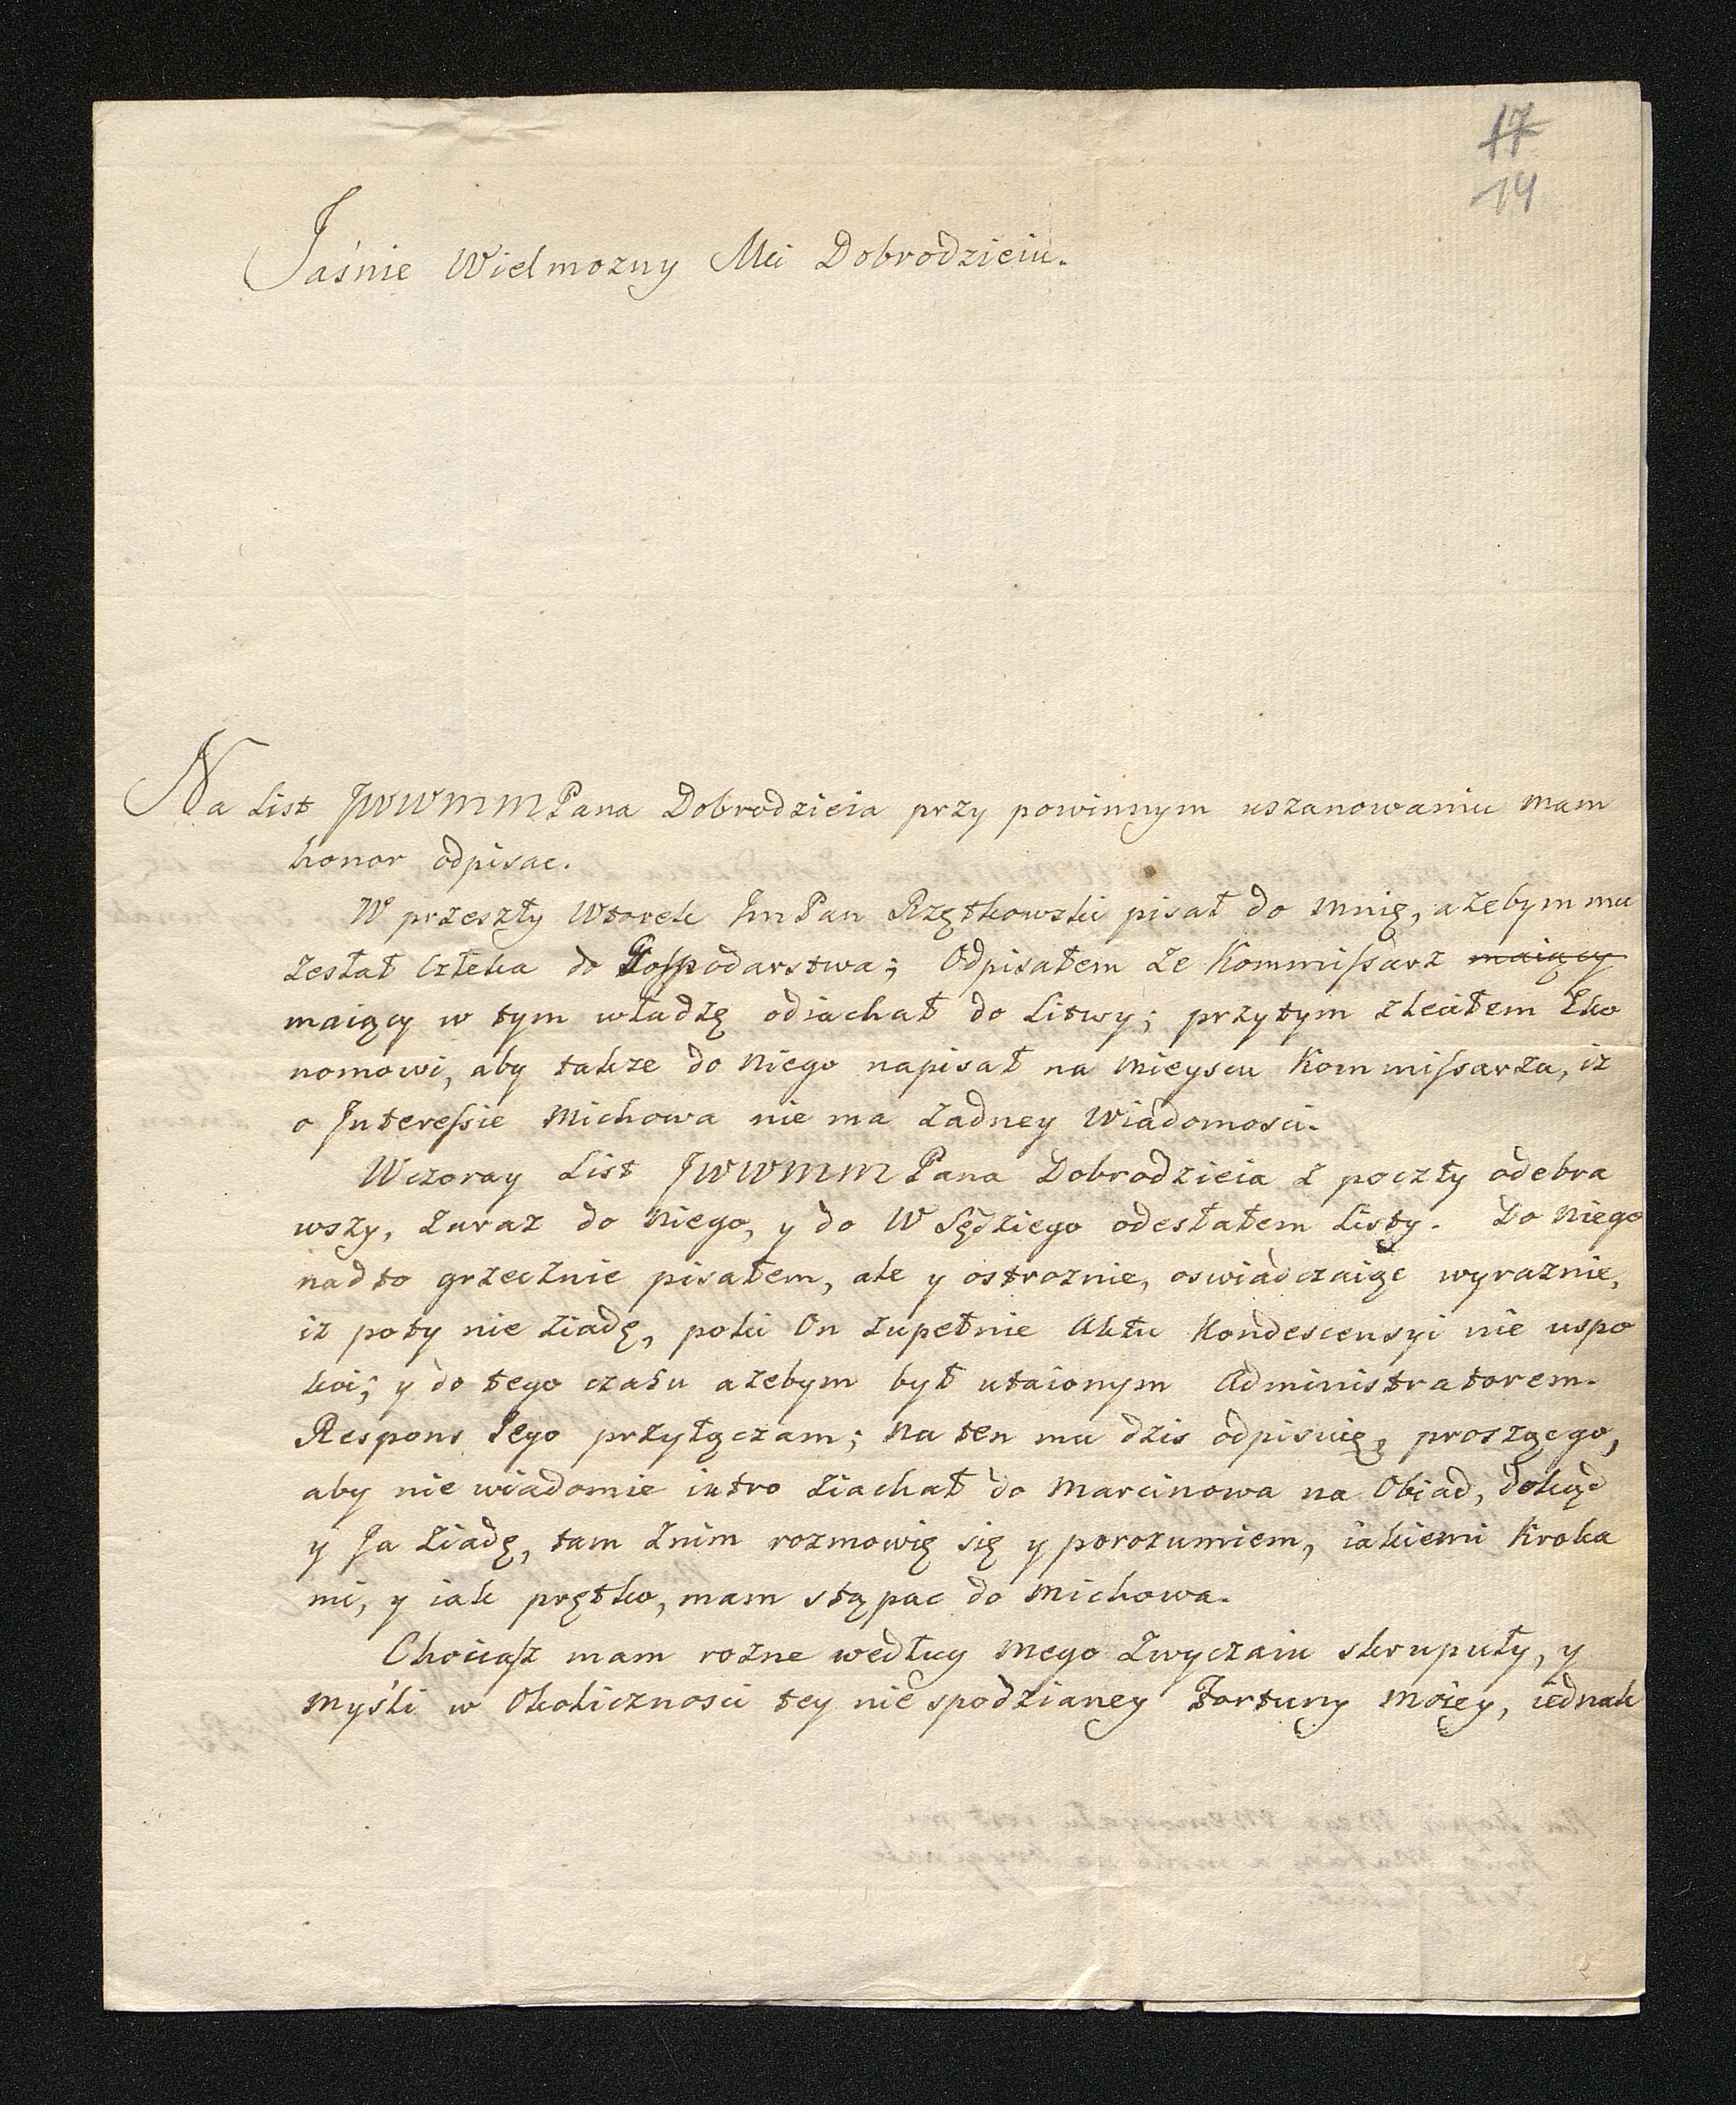 17
14
Jaśnie Wielmozny Mci Dobrodzieiu.
Na List JWWMMPana Dobrodzieia przy powinnym uszanowaniu mam
honor odpisac.
W przeszły Wtorek ImPan Rzętkowski pisał do mnię, azebym mu
zesłał Człeka do Gospodarstwa; Odpisałem ze Kommissarz maiący
maiący w tym władzę odiachał do Litwy; przytym zleciłem Eko
nomowi, aby takze do niego napisał na mieyscu Kommissarza, iz
o Interessie Michowa nie ma zadney Wiadomosci.
Wczoray List JWWMMPana Dobrodzieia z poczty odebra
wszy, zaraz do niego, y do W Sędziego odesłałem Listy. Do niego
nadto grzecznie pisałem, ale y ostroznie, oswiadczaiąc wyraznie,
iz poty nie ziadę, poki On zupełnie Aktu Kondescensyi nie uspo
koi; y do tego czasu azebym był utaionym Administratorem.
Respons Jego przyłączam; na ten mu dzis odpisuię, prosząc go,
aby nie wiadomie iutro ziachał do Marcinowa na Obiad, dokąd
y Ja ziadę, tam znim rozmowię się y porozumiem, iakiemi Kroka
mi, y iak prętko, mam stąpac do Michowa.
Chociasz mam rozne według mego zwyczaiu skrupuły, y
myśli w Okolicznosci tey nie spodzianey Fortuny moiey, iednak